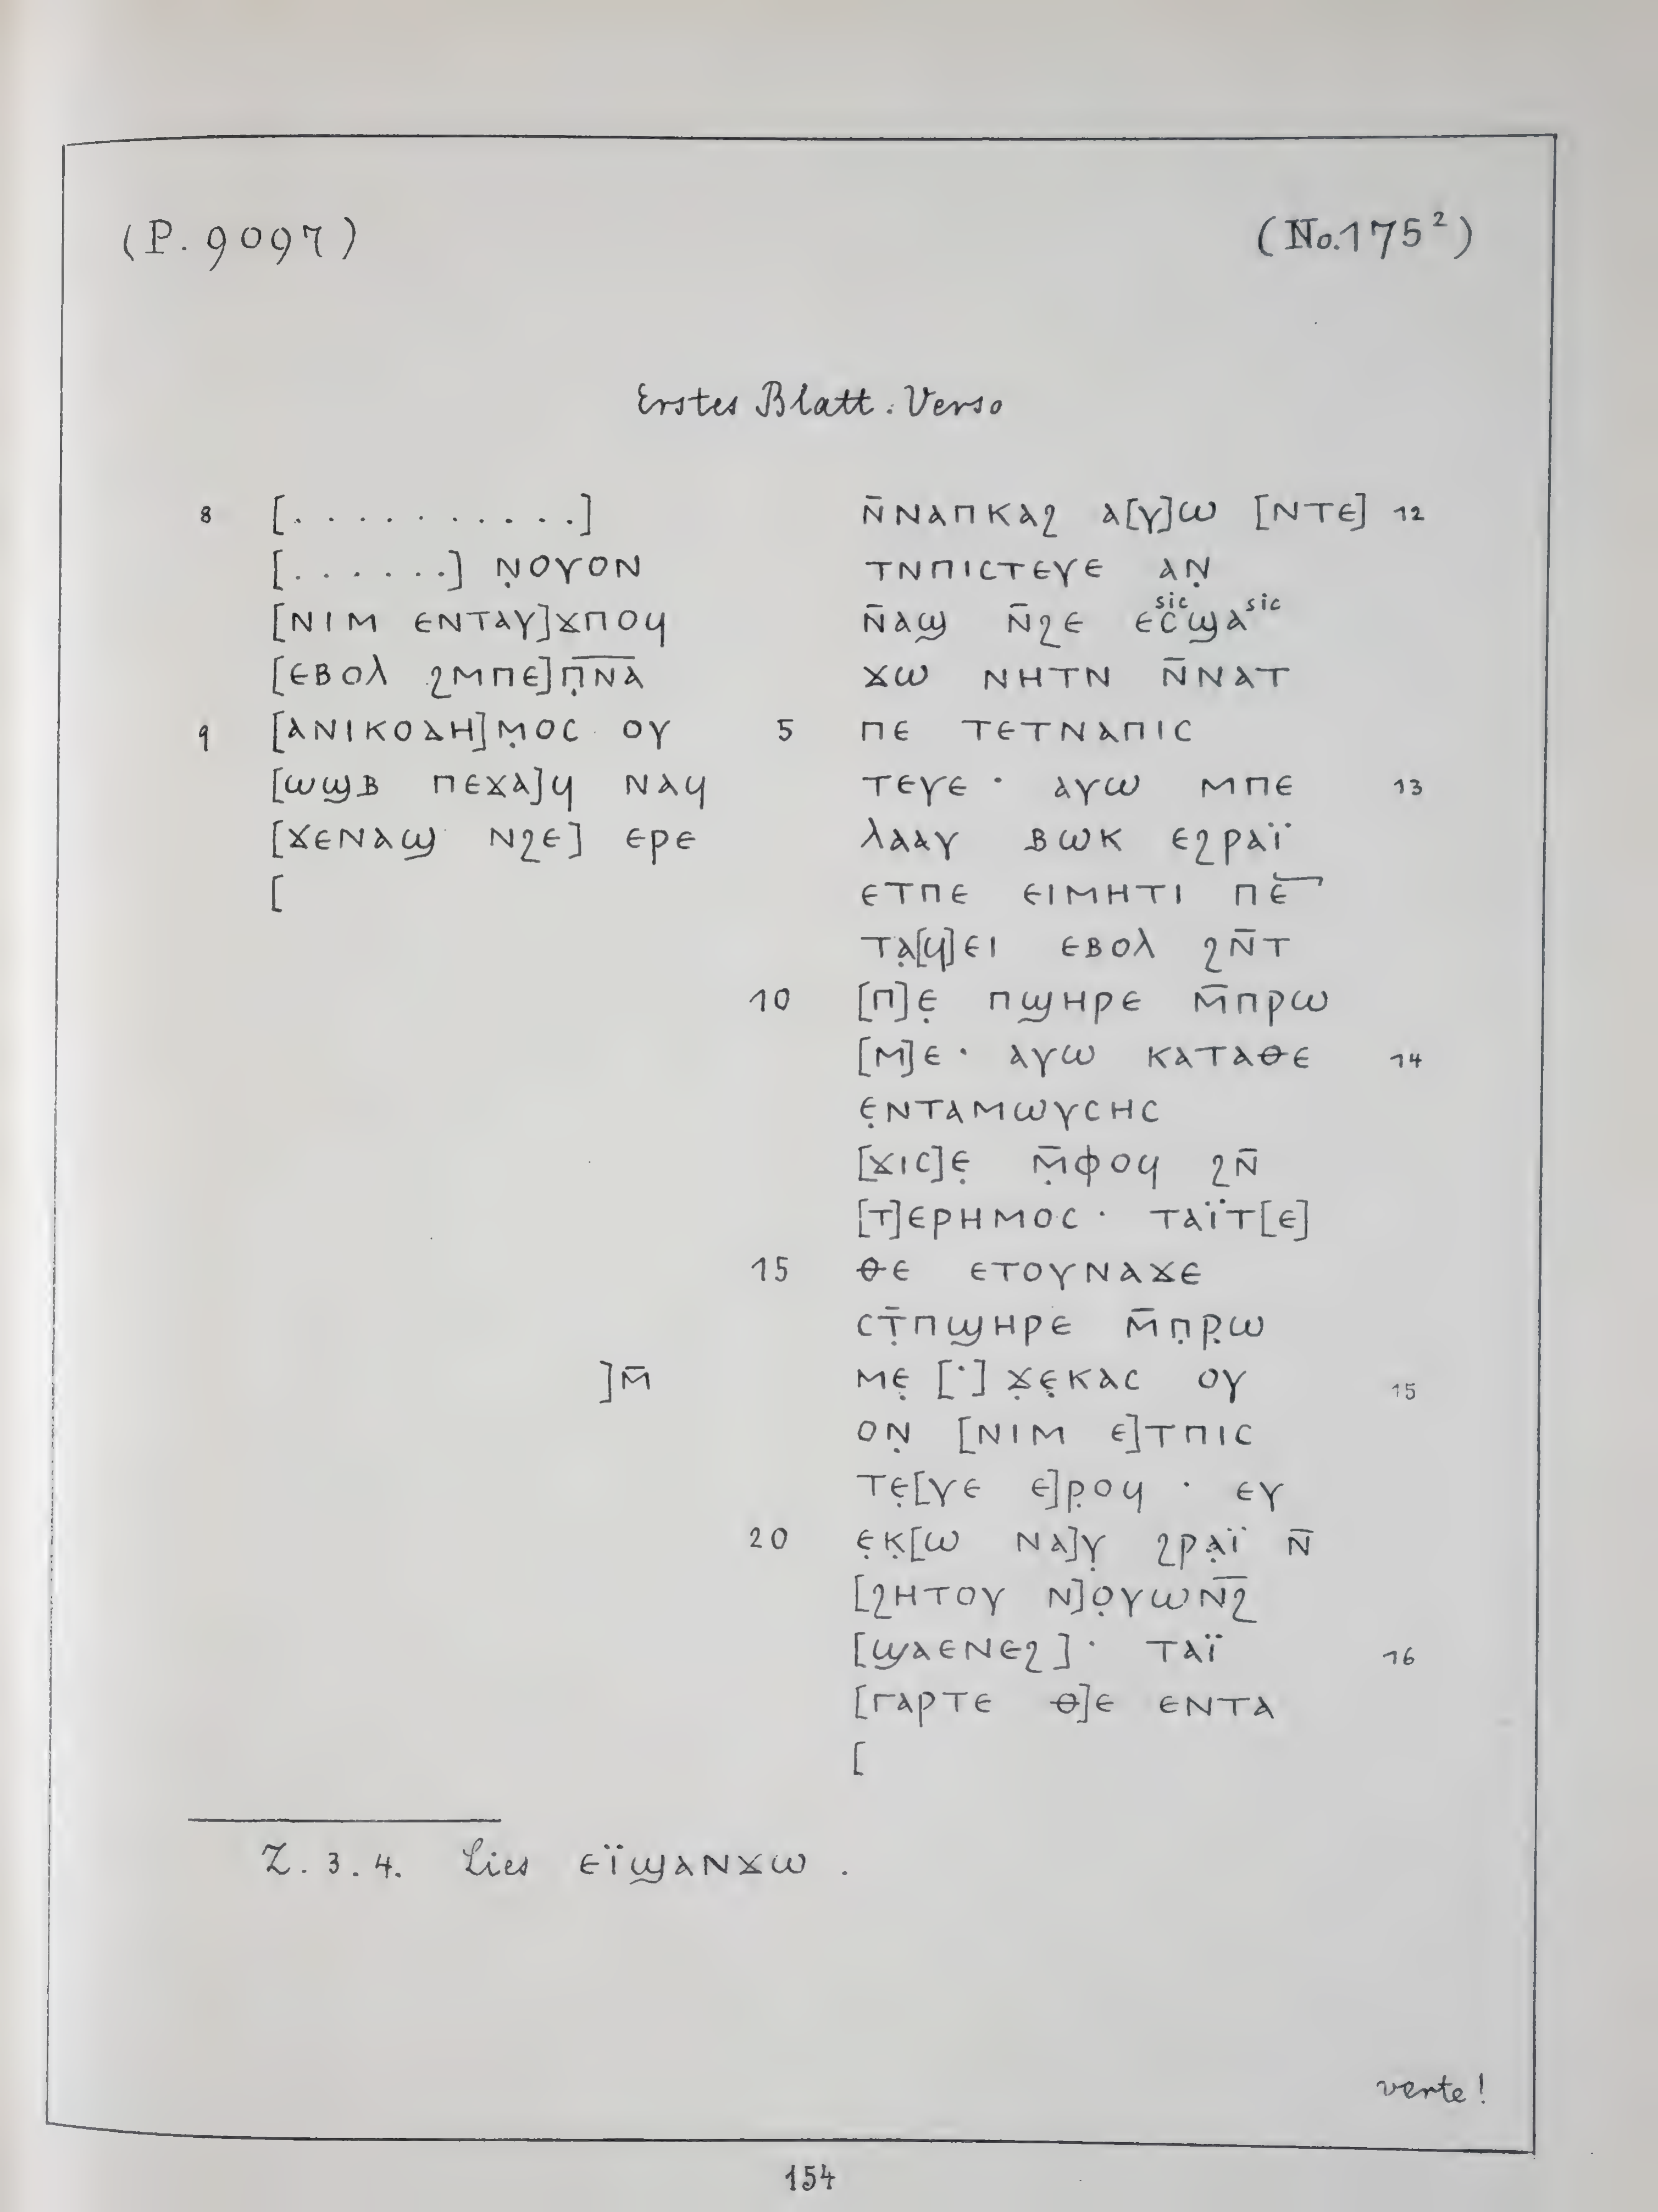 (P. 9097) (No. 175²)
Erstes Blatt. Verso
8 [. . . . . . . . . .]
[. . . . . .] ⲛ̣ⲟⲩⲟⲛ
[ⲛⲓⲙ ⲉⲛⲧⲁⲩ]ϫⲡⲟϥ
[ⲉⲃⲟⲗ ϩⲙⲡⲉ]ⲡ̣̅ⲛ̅ⲁ̅
9 [ⲁⲛⲓⲕⲟⲇⲏ]ⲙ̣ⲟⲥ ⲟⲩ
[ⲱϣⲃ ⲡⲉϫⲁ]ϥ ⲛⲁϥ
[ϫⲉⲛⲁϣ ⲛϩⲉ] ⲉⲣⲉ
[
]ⲙ̅
ⲛ̅ⲛⲁⲡⲕⲁϩ ⲁ[ⲩ]ⲱ [ⲛⲧⲉ] 12
ⲧⲛⲡⲓⲥⲧⲉⲩⲉ ⲁⲛ̣
ⲛ̅ⲁϣ ⲛ̅ϩⲉ ⲉⲥ(sic)ϣⲁ(sic)
ϫⲱ ⲛⲏⲧⲛ ⲛ̅ⲛⲁⲧ
5 ⲡⲉ ⲧⲉⲧⲛⲁⲡⲓⲥ
ⲧⲉⲩⲉ · ⲁⲩⲱ ⲙⲡⲉ 13
ⲗⲁⲁⲩ ⲃⲱⲕ ⲉϩⲣⲁⲓ̈
ⲉⲧⲡⲉ ⲉⲓⲙⲏⲧⲓ ⲡⲉ̅
ⲧⲁ̣[ϥ]ⲉⲓ ⲉⲃⲟⲗ ϩⲛ̅ⲧ
10 [ⲡ]ⲉ̣ ⲡϣⲏⲣⲉ ⲙ̅ⲡⲣⲱ
[ⲙ]ⲉ · ⲁⲩⲱ ⲕⲁⲧⲁⲑⲉ 14
ⲉ̣ⲛⲧⲁⲙⲱⲩⲥⲏⲥ
[ϫⲓⲥ]ⲉ̣ ⲙ̣̅ⲫⲟϥ ϩⲛ̅
[ⲧ]ⲉⲣⲏⲙⲟⲥ · ⲧⲁⲓ̈ⲧ[ⲉ]
15 ⲑⲉ ⲉⲧⲟⲩⲛⲁϫⲉ
ⲥⲧ̣̅ⲡϣⲏⲣⲉ ⲙ̅ⲡ̣ⲣ̣ⲱ
ⲙⲉ̣ [·] ϫ̣ⲉ̣ⲕⲁⲥ ⲟⲩ 15
ⲟⲛ̣ [ⲛⲓⲙ ⲉ]ⲧⲡⲓⲥ
ⲧⲉ̣[ⲩⲉ ⲉ]ⲣ̣ⲟϥ · ⲉⲩ
20 ⲉ̣ⲕ̣[ⲱ ⲛⲁ]ⲩ̣ ϩⲣⲁ̣ⲓ̈ ⲛ̅
[ϩⲏⲧⲟⲩ ⲛ]ⲟ̣ⲩⲱⲛ̅ϩ̅
[ϣⲁⲉⲛⲉϩ] · ⲧⲁⲓ̈ 16
[ⲅⲁⲣⲧⲉ ⲑ]ⲉ ⲉⲛⲧⲁ
[
Z. 3. 4. Lies ⲉⲓ̈ϣⲁⲛϫⲱ .
verte!
154